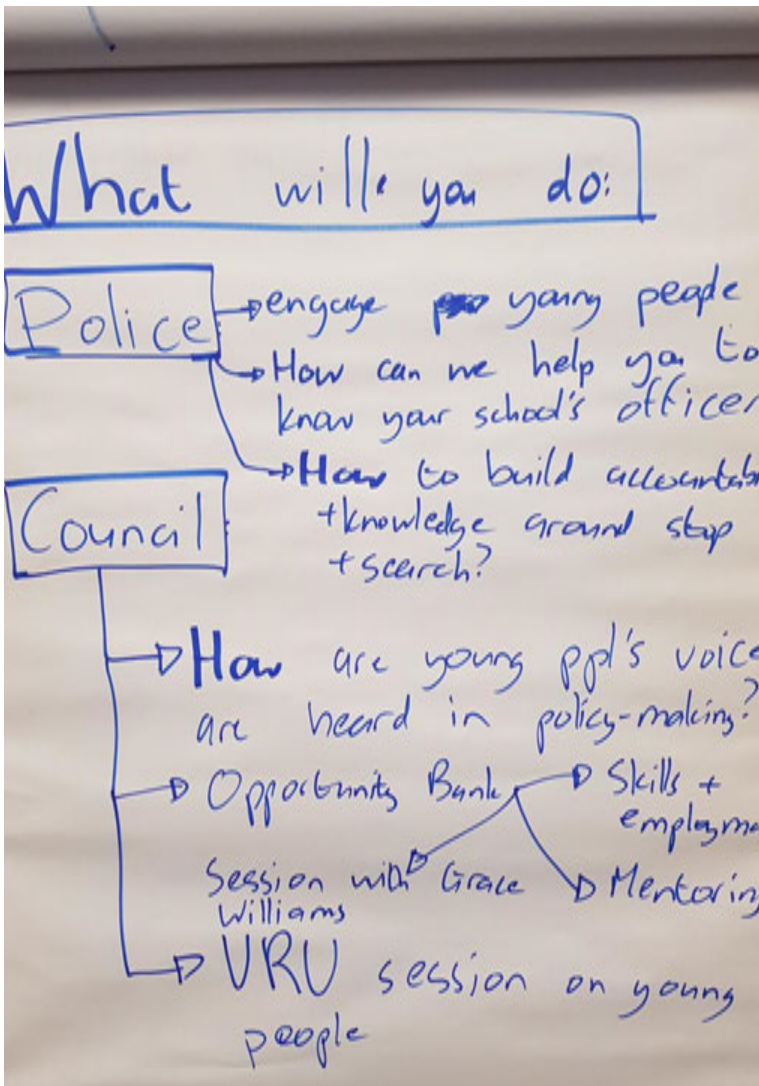 What will you do:
Police
engage young people
How can we help you to
know your school's officer
How to build accountab
+knowledge around stop
+ search?
Council
How are young ppl's voice
are heard in policy-making?
Opportunity Bank
Skills +
employme
Session with Grace
Williams
Mentoring
VRU session on young
people